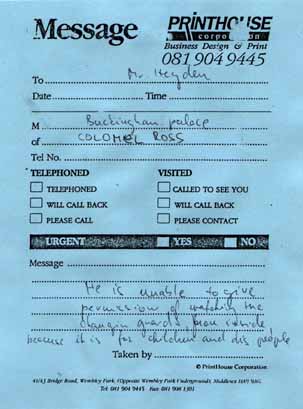 Message
PRINTHOUSE
corporation
Business Design & Print
081 904 9445
To Mr. Heyden
Date Time
M Buckingham palace
of COLONEL ROSS
Tel No.
TELEPHONED VISITED
TELEPHONED CALLED TO SEE YOU
WILL CALL BACK WILL CALL BACK
PLEASE CALL PLEASE CONTACT
URGENT YES NO
Message
He is unable to give
permission of watching the
changin guards from inside
because it is for children and dis people
Taken by
© PrintHouse Corporation
Bridge Road, Wembley Park, (Opposite Wembley Park Underground), Middlesex HA9 9HG
Tel 081 904 9445 Fax 081 908 1391